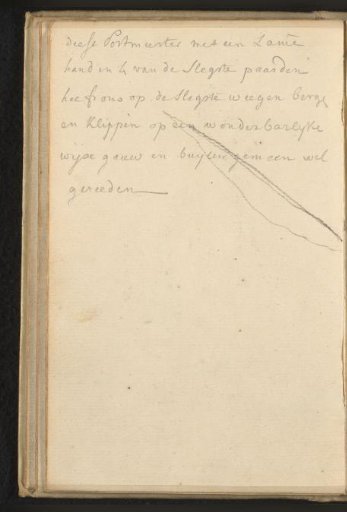 diese Postmeester met een Lame
hand en 4 van de slegste paarden
heeft ons op de slegste weegen berge
en Klippen op een wonderbarlijke
wijse gauw en buijten gemeen wel
gereeden